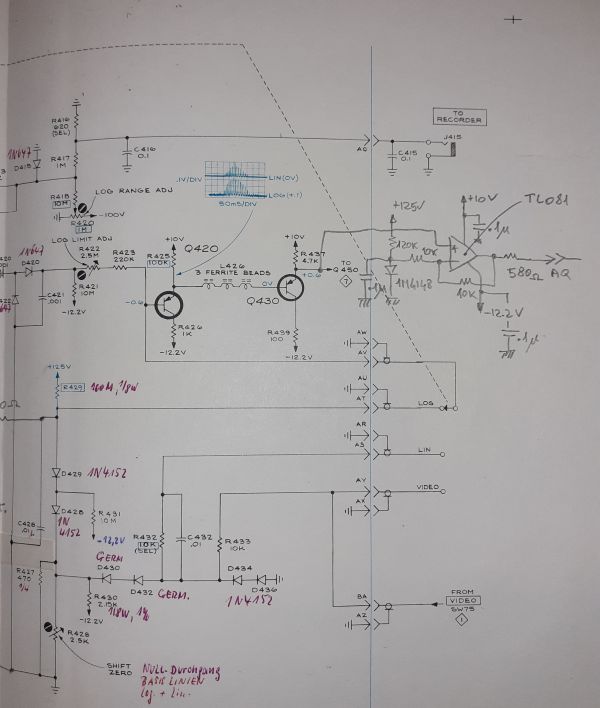 TO
RECORDER
R416
620
(SEL)
J415
AQ
C416
0.1
C415
0.1
1N647
D415
R417
1M
R418
10M
LOG RANGE ADJ
.1V/DIV
LIN(0V)
LOG(+.7)
50mS/DIV
-100V
R420
1M
LOG LIMIT ADJ
+125V
+10V
TL081
.1µ
1N647
R422
2.5M
R423
220K
R425
100K
+10V
Q420
+10V
R437
4.7K
120K
10K
D420
L426
3 FERRITE BEADS
0V
+0.6
TO
Q450
7
580Ω
AQ
C421
.001
R421
10M
-12.2V
-0.6
Q430
.1µ
1N4148
10K
-12.2V
.1µ
R426
1K
-12.2V
R439
100
-12.2V
AW
AV
+125V
R429
100M, 1/8W
AU
AT
LOG
AR
AS
LIN
D429
1N4152
AY
VIDEO
AX
D428
1N
4152
R431
10M
-12,2V
C428
.01
R432
10K
(SEL)
C432
.01
R433
10K
GERM
D430
D432
GERM.
D434
D436
1N4152
R427
470
1/4
R430
2.15K
1/8W, 1%
-12.2V
BA
AZ
FROM
VIDEO
SW75
1
R428
2.5K
SHIFT
ZERO
NULL-Durchgang
BASIS LINIEN
Log. + Lin.